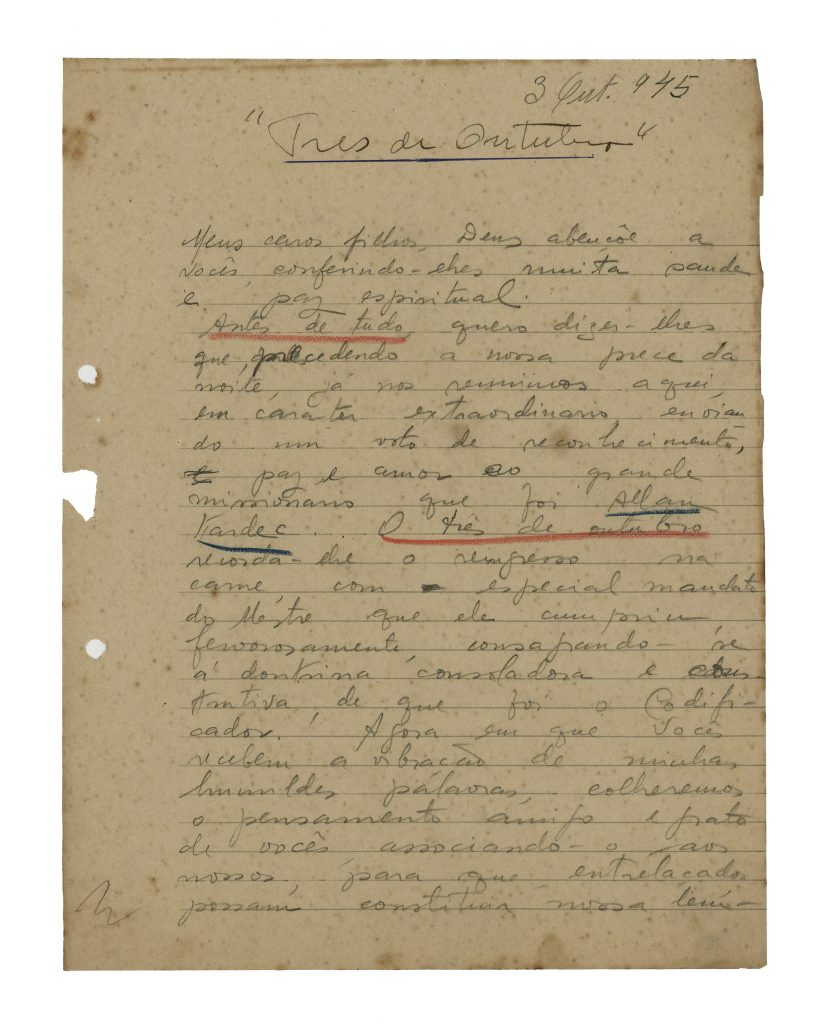 3 Out. 945
"Tres de Outubro"
Meus caros filhos, Deus abençôe a
vocês, conferindo-lhes muita saude
e paz espiritual.
Antes de tudo, quero dizer-lhes
que, precedendo a nossa prece da
noite, já nos reunimos aqui,
em carater extraordinario, envian
do um voto de reconhecimento,
paz e amor ao grande
missionario que foi Allan
Kardec. O três de outubro
recorda-lhe o reingresso na
carne, com especial mandato
do Mestre que ele cumpriu
fervorosamente, consagrando-se
á doutrina consoladora e cons-
trutiva, de que foi o Codifi-
cador. Agora em que vocês
recebem a vibração de minhas
humildes palavras, colheremos
o pensamento amigo e grato
de vocês associando-o aos
nossos, para que entrelaçados
possam constituir nossa lem-